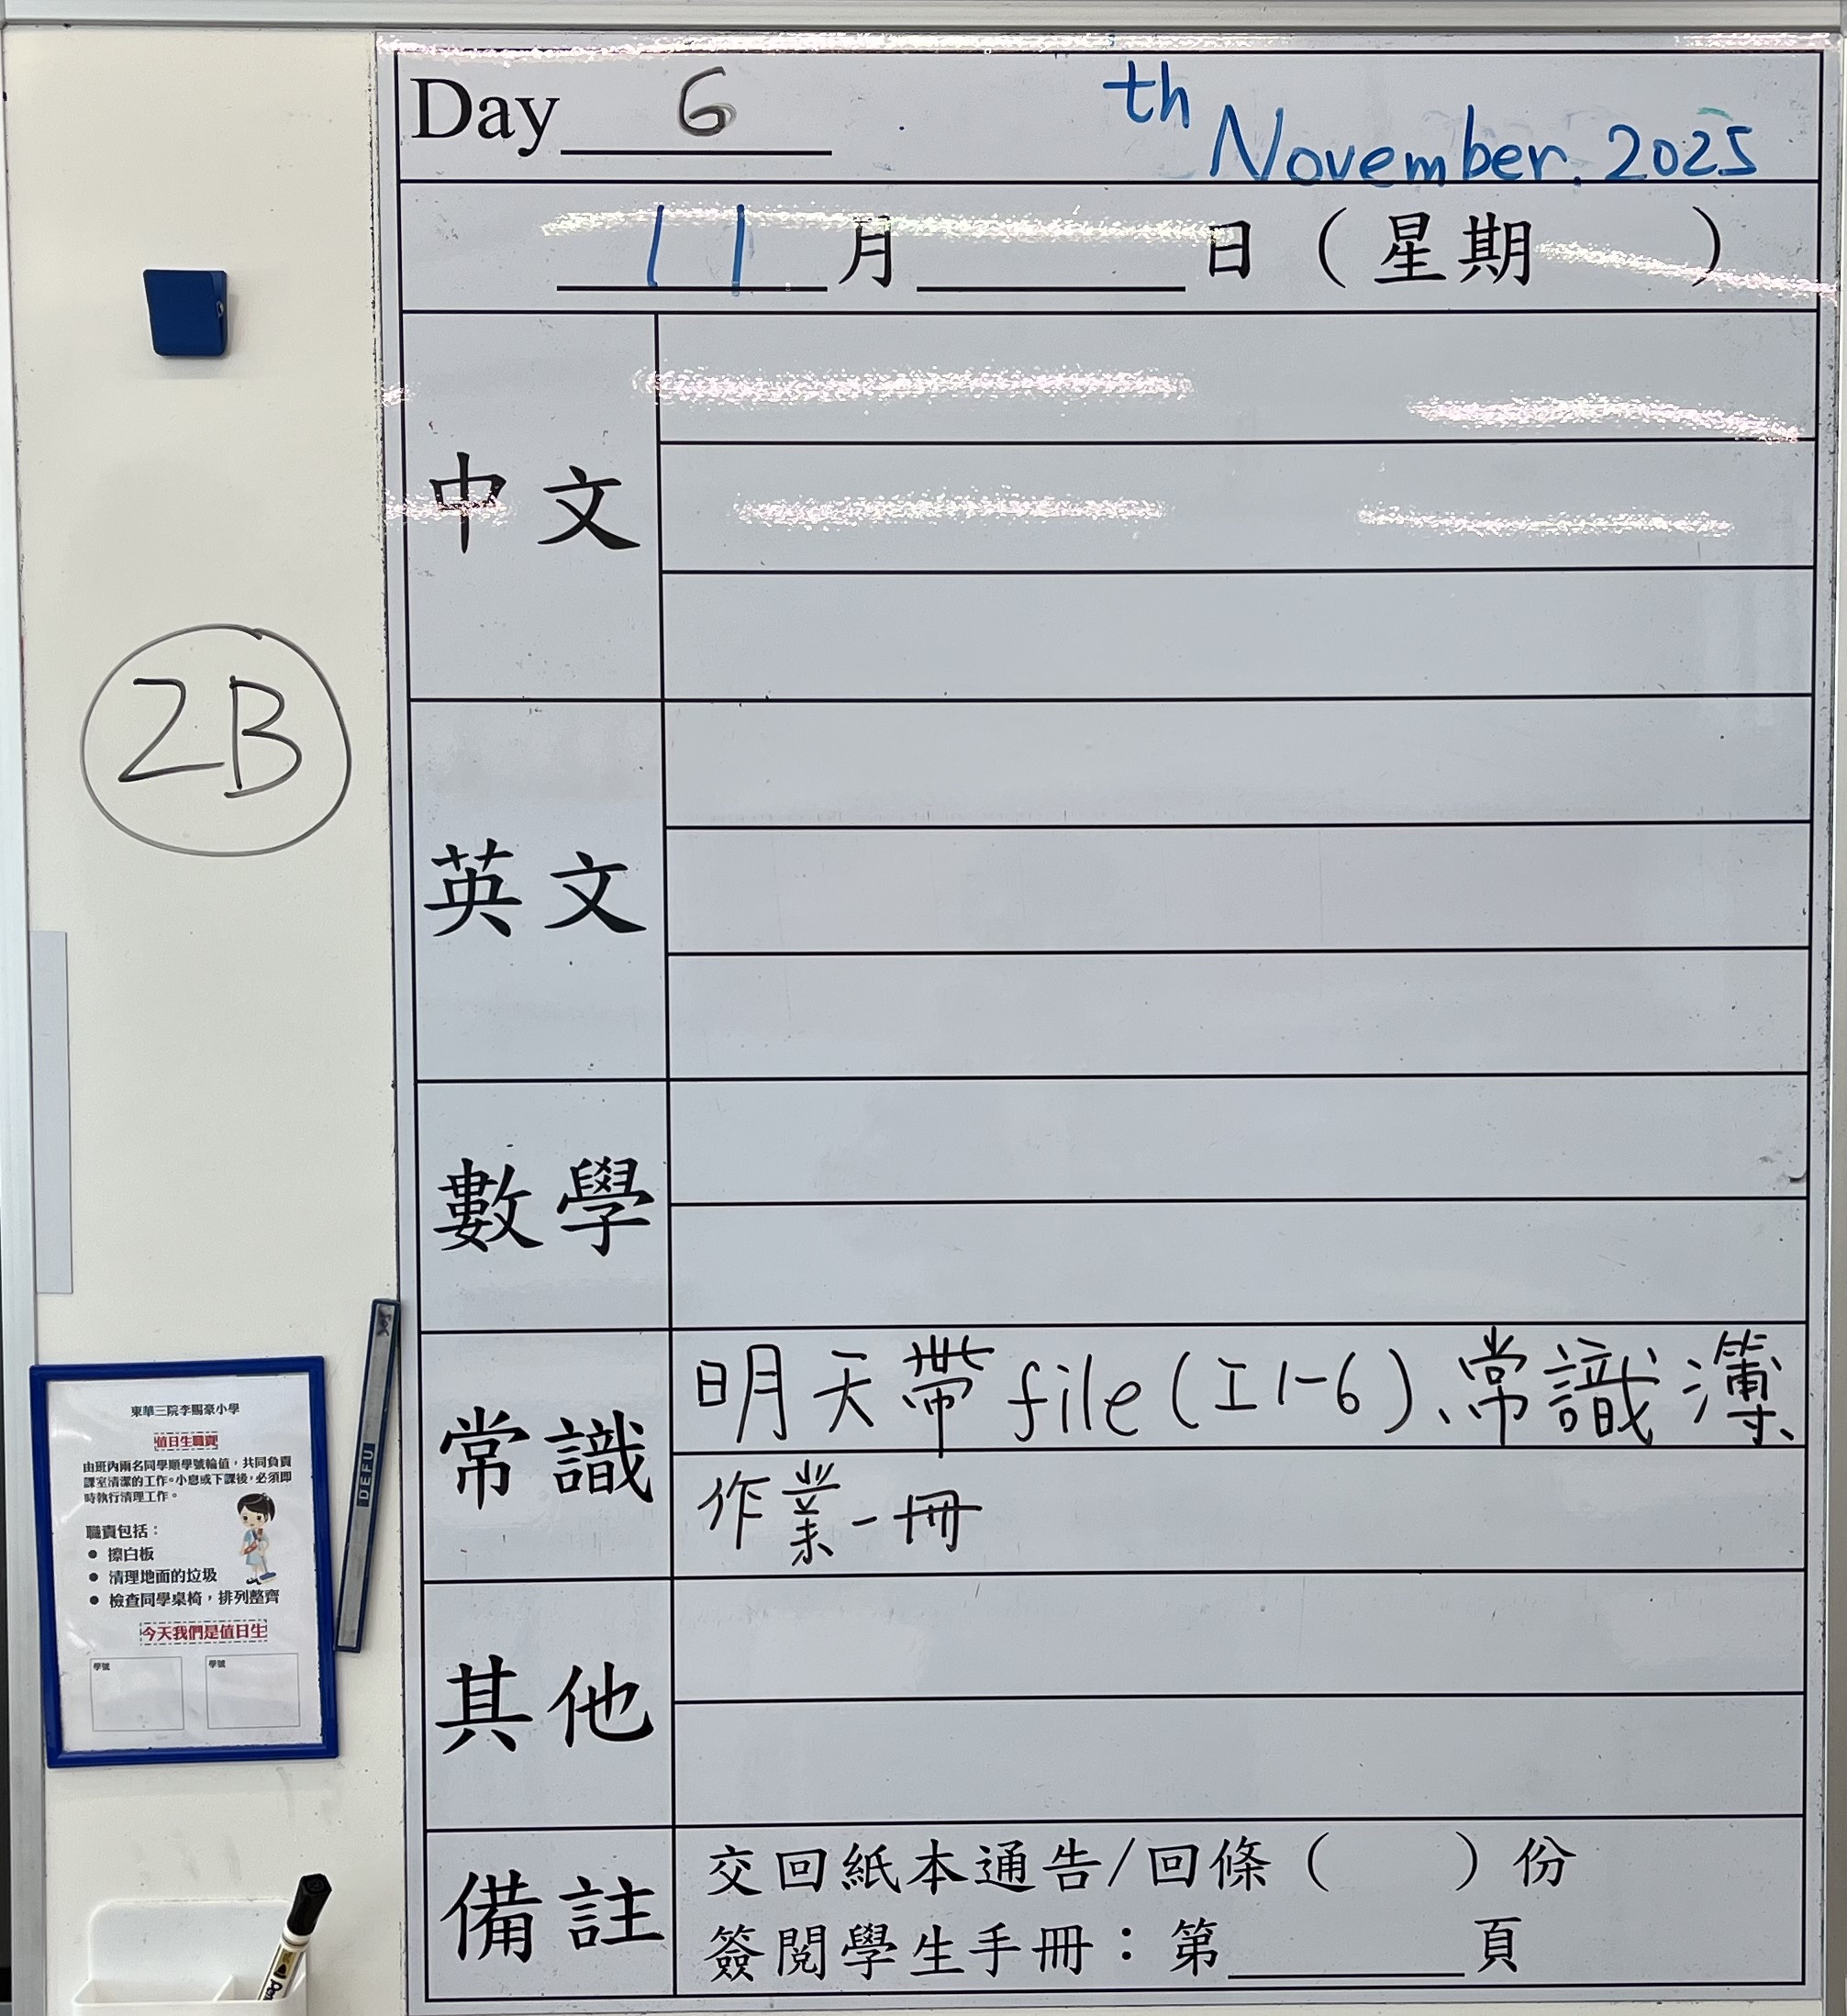 Day 6 th November. 2025
11月 日（星期 ）
中文
英文
數學
常識
明天帶file(工1-6)、常識簿、
作業一冊
其他
備註
交回紙本通告/回條（ ）份
簽閱學生手冊：第 頁
2B
東華三院李賜豪小學
值日生職責
由班內兩名同學順學號輪值，共同負責
課室清潔的工作。小息或下課後，必須即
時執行清理工作。
職責包括：
● 擦白板
● 清理地面的垃圾
● 檢查同學桌椅，排列整齊
今天我們是值日生
學號 學號
DEFU